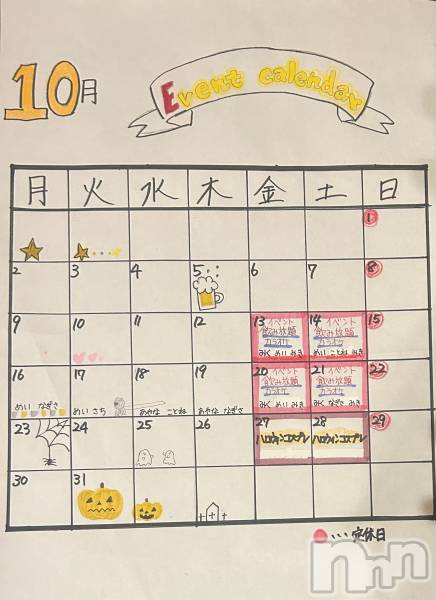 10月
Event calendar
月 火 水 木 金 土 日
1
2 3 4 5 6 7 8
9 10 11 12 13 14 15
イベント イベント
飲み放題 飲み放題
カラオケ カラオケ
みく めい みき めい ことね みき
16 17 18 19 20 21 22
イベント イベント
飲み放題 飲み放題
カラオケ カラオケ
めい なぎさ めい さち あやな ことね あやな なぎさ みく めい みき みく なぎさ みき
23 24 25 26 27 28 29
ハロウィンコスプレ ハロウィンコスプレ
30 31
●...定休日
nnn